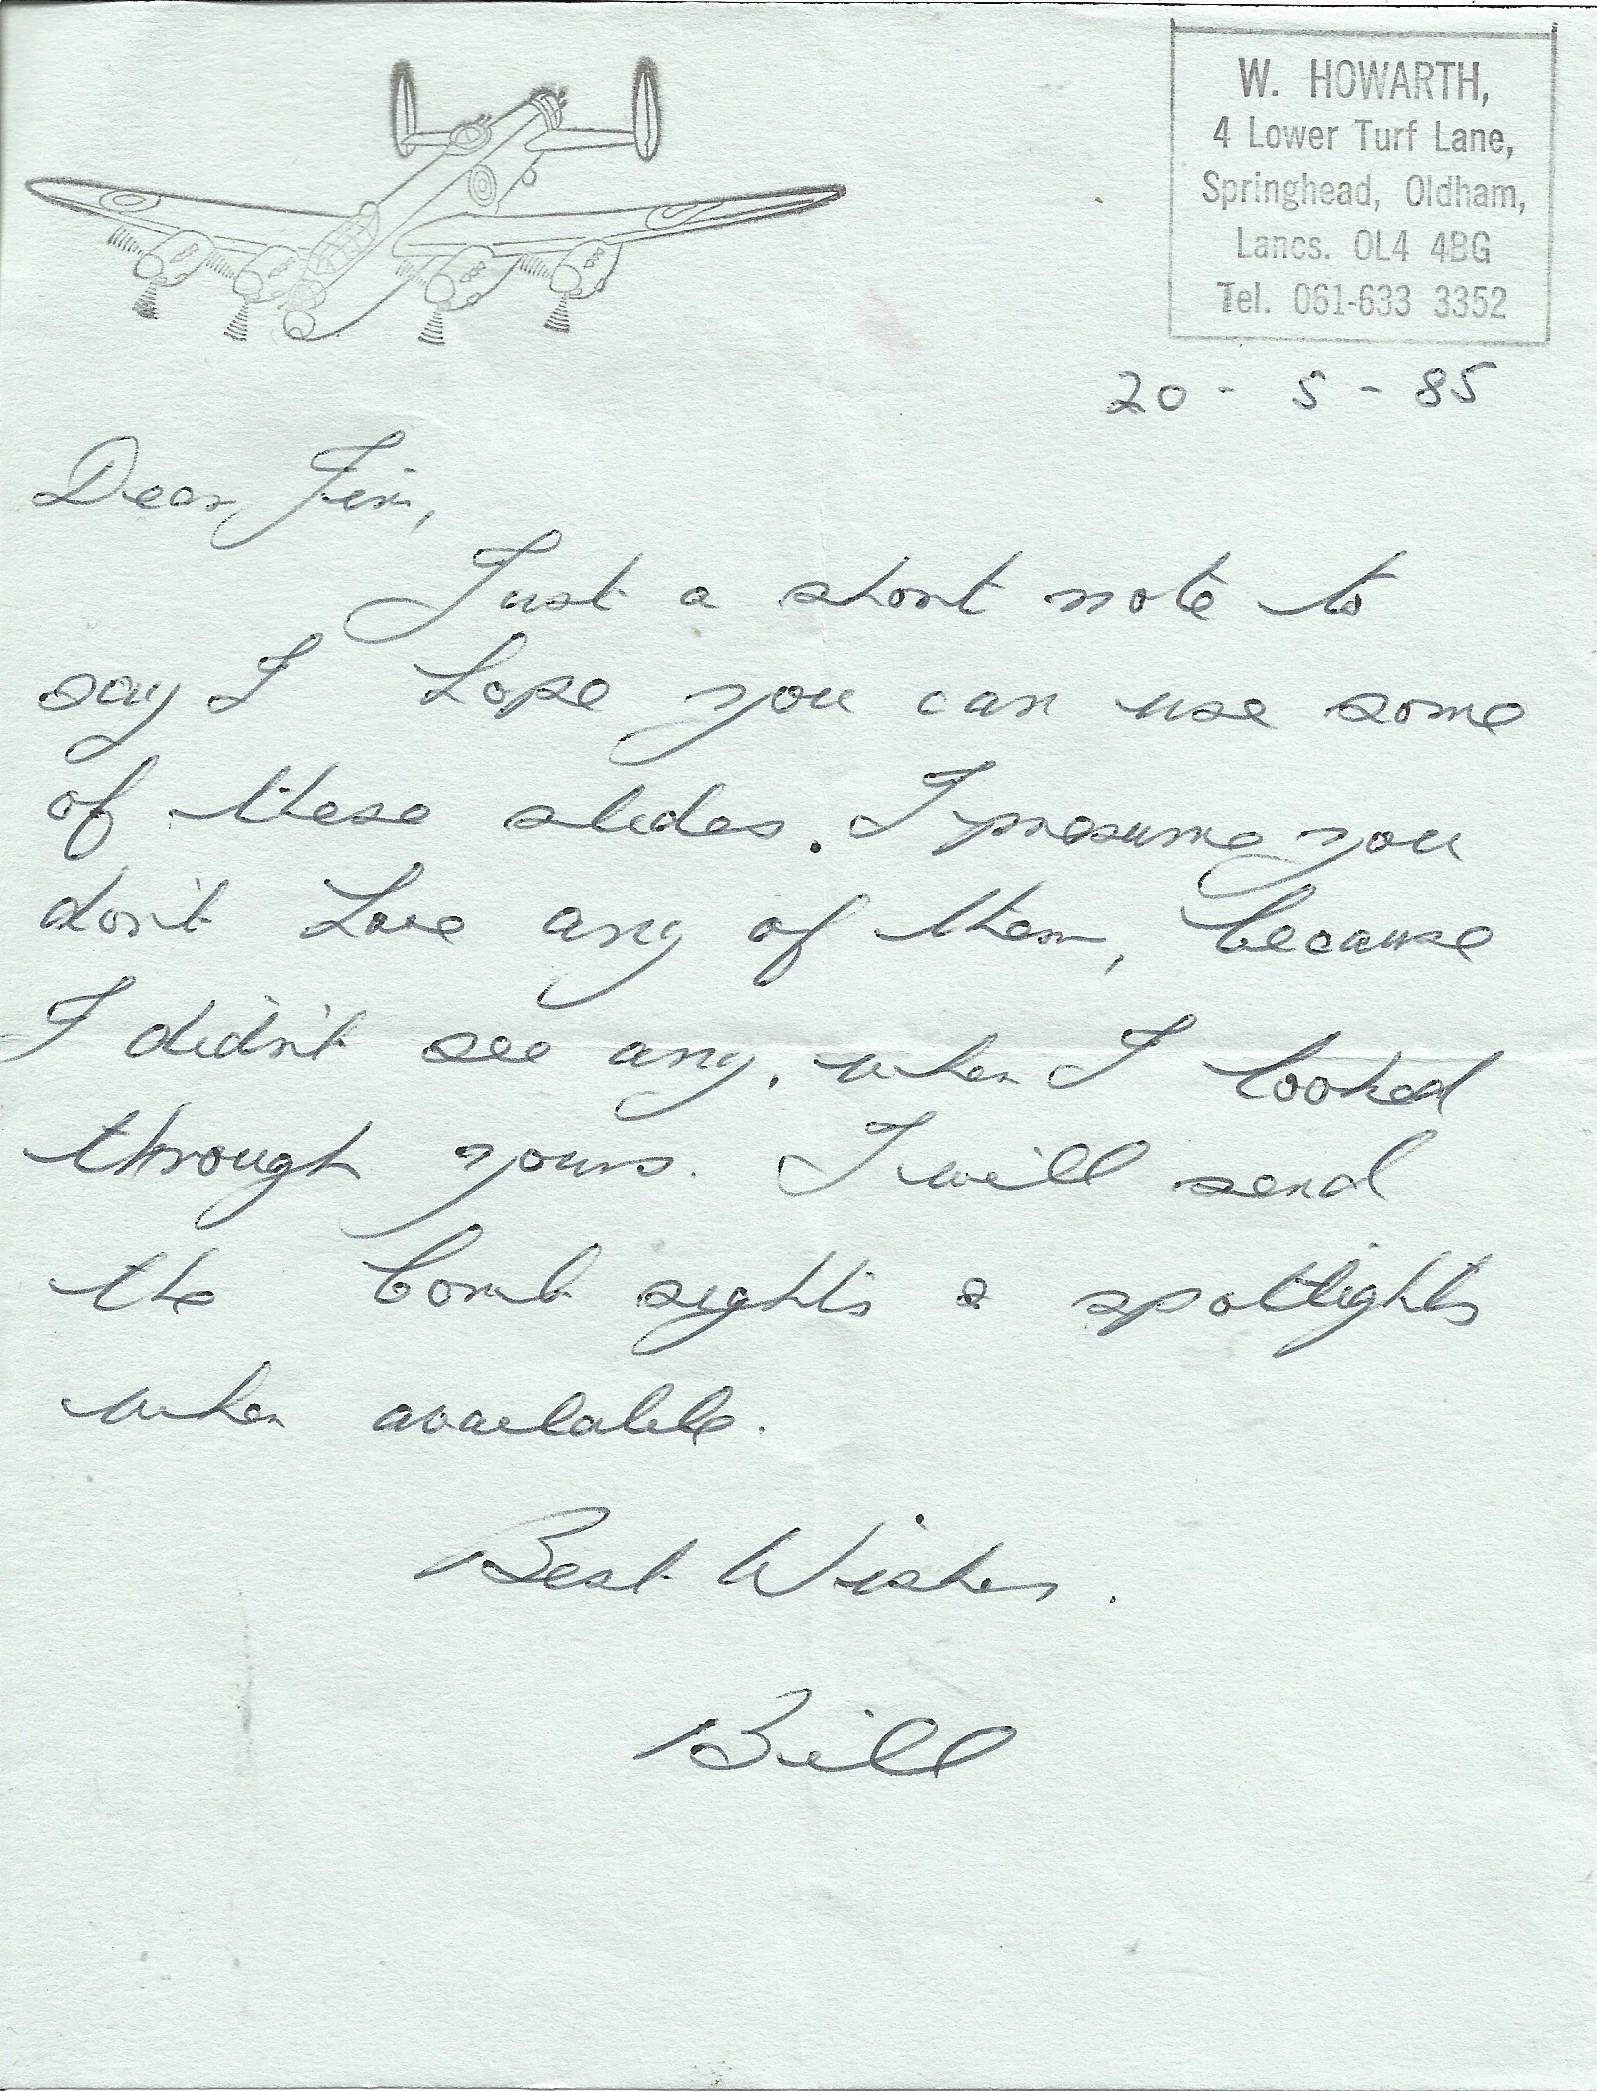 W. HOWARTH,
4 Lower Turf Lane,
Springhead, Oldham,
Lancs. OL4 4BG
Tel. 061-633 3352
20 - 5 - 85
Dear Jim,
Just a short note to
say I hope you can use some
of these slides. I presume you
don't have any of them, because
I didn't see any, when I looked
through yours. I will send
the bomb sights & spotlights
when available.
Best Wishes.
Bill